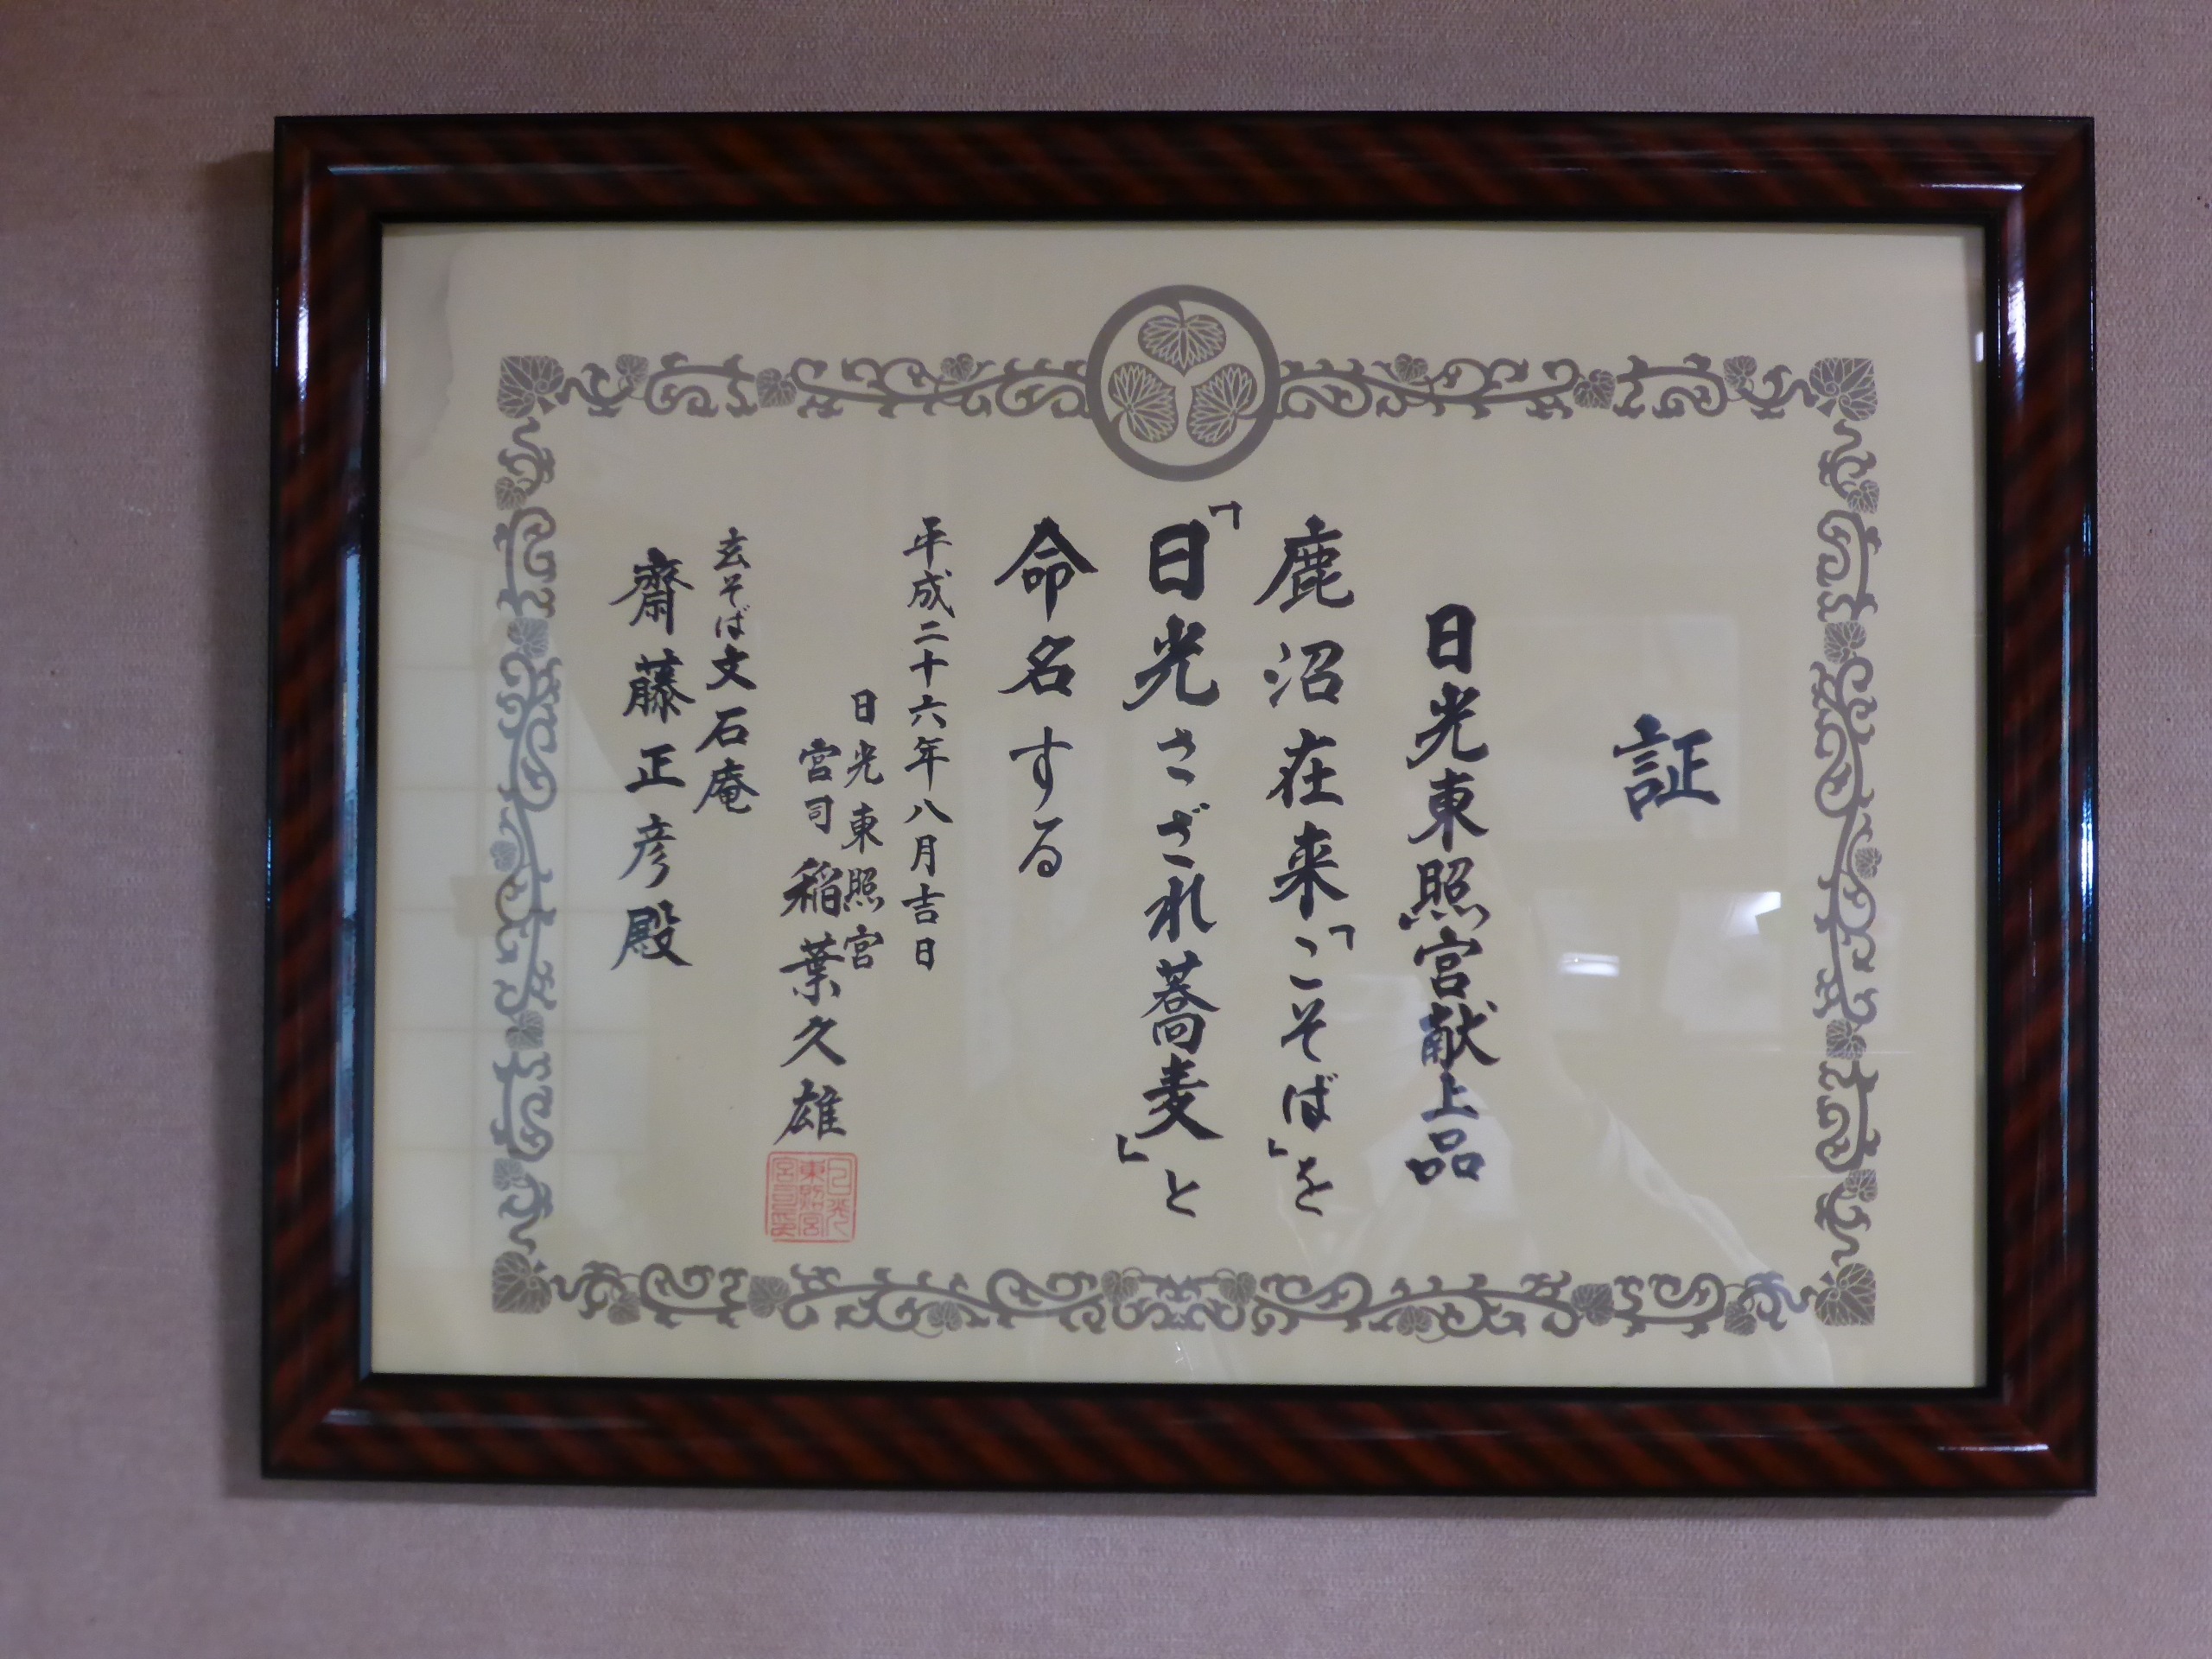 証
日光東照宮献上品
鹿沼在来「こそば」を
「日光さざれ蕎麦」と
命名する
平成二十六年八月吉日
日光東照宮
宮司 稲葉久雄
玄そば文石庵
齋藤正彦殿